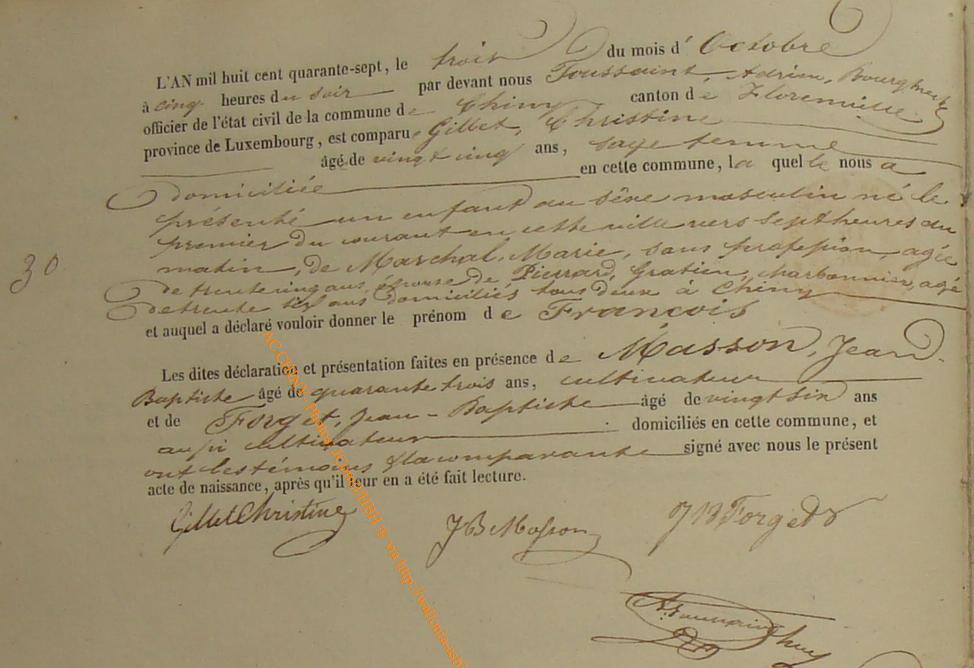 L'AN mil huit cent quarante-sept, le trois du mois d' Octobre
à cinq heures du soir par devant nous Toussaint, Adrien, Bourgmestre
officier de l'état civil de la commune de Chiny canton de Florenville.
province de Luxembourg, est comparue Gillet, Christine
âgé de vingt cinq ans, sage femme
domiciliée en cette commune, la quelle nous a
présenté un enfant du sèxe masculin né le
premier du courant en cette ville vers sept heures du
matin, de Marchal, Marie, sans profession, agée
de trente cinq ans, épouse de Pierrard, Gratien, charbonnier, agé
de trente six ans domiciliés tous deux à Chiny
et auquel a déclaré vouloir donner le prénom de François
30
Les dites déclaration et présentation faites en présence de Masson, Jean-
Baptiste âgé de quarante trois ans, cultivateur
et de Forget, Jean-Baptiste âgé de vingt six ans
aussi cultivateur . domiciliés en cette commune, et
ont les témoins & la comparante signé avec nous le présent
acte de naissance, après qu'il leur en a été fait lecture.
Gillet Christine
JB Masson
JB Forget
A. Toussaint